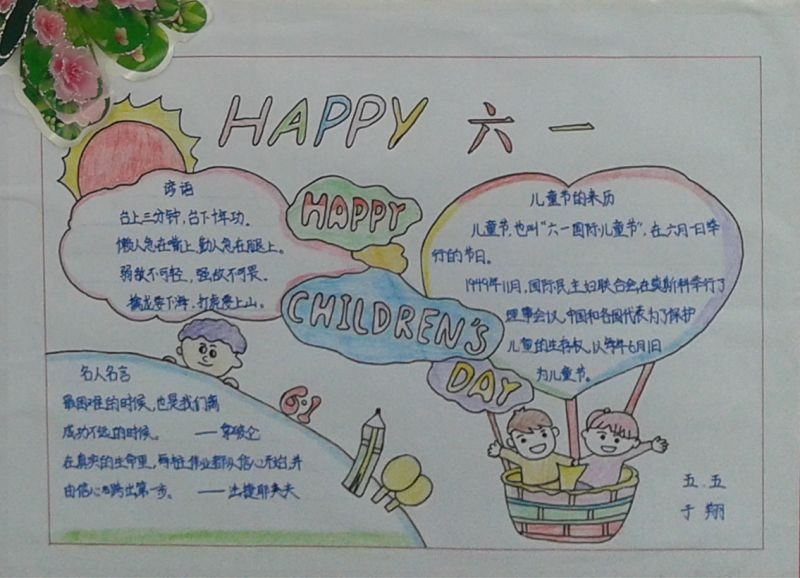 HAPPY 六一
谚语
台上三分钟，台下十年功。
懒人急在嘴上，勤人急在腿上。
弱敌不可轻，强敌不可畏。
擒龙要下海，打虎要上山。
HAPPY
CHILDREN'S
DAY
儿童节的来历
儿童节，也叫“六一国际儿童节”，在六月一日举
行的节日。
1949年11月，国际民主妇联合会在莫斯科举行了
理事会议，中国和各国代表为了保护
儿童的生存权，以每年6月1日
为儿童节。
名人名言
最困难的时候，也是我们离
成功不远的时候。——拿破仑
在真实的生命里，每桩伟业都从信心开始，并
由信心跨出第一步。——
6·1
五．五
于翔